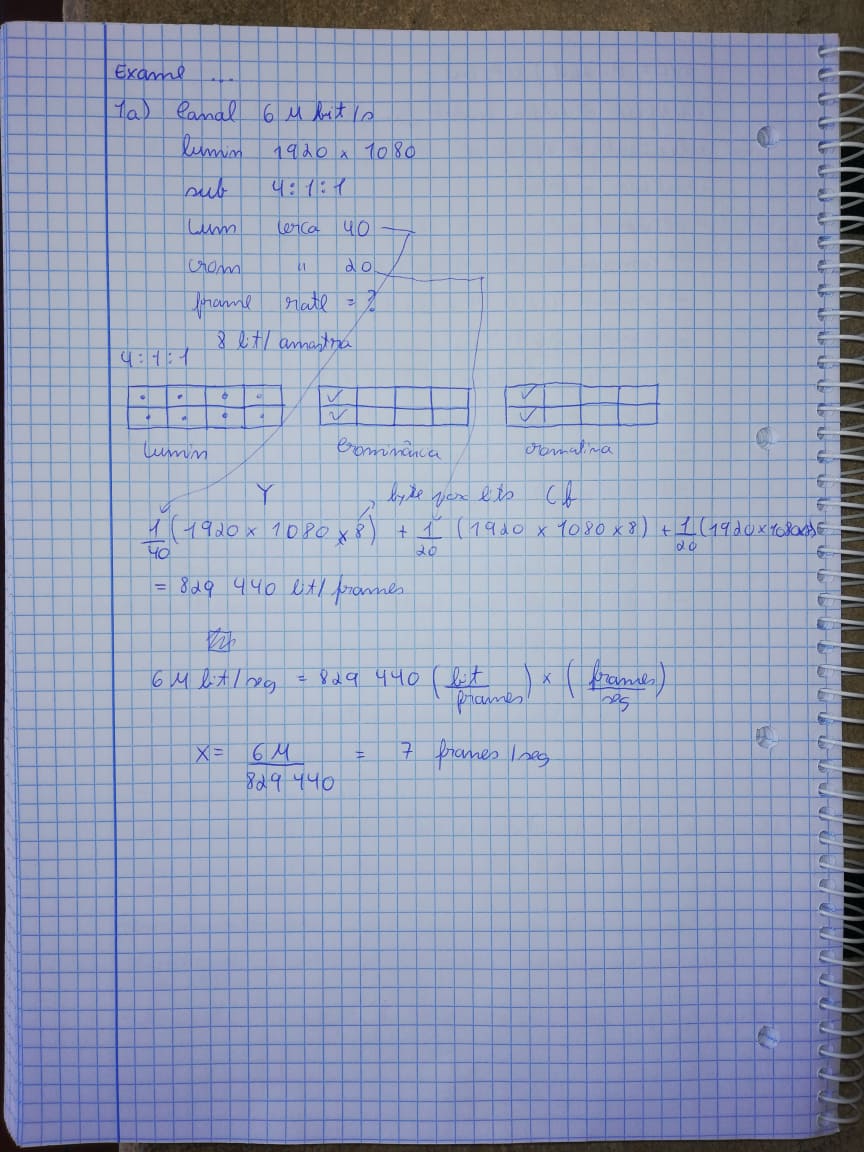 Exame ...
1a) Canal 6 M bit/s
lumin 1920 x 1080
sub 4:1:1
lum cerca 40
crom " 20
frame rate = ?
8 bit/ amostra
4:1:1
lumin Crominância
Y byte para bits Cb
1/40 (1920 x 1080 x 8) + 1/20 (1920 x 1080 x 8) + 1/20 (1920 x 1080x8)
= 829 440 bit/ frames
6 M bit/seg = 829 440 (bit/frames) x (frames/seg)
X = 6 M/829 440 = 7 frames /seg